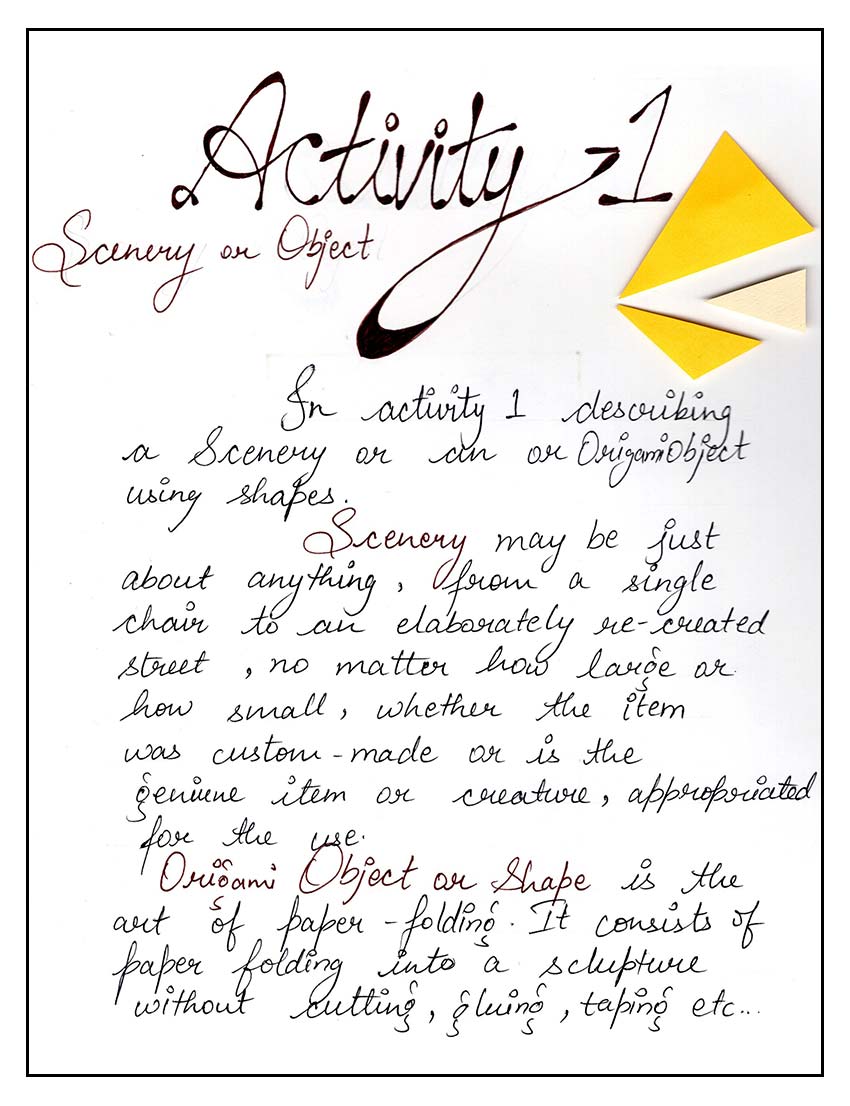 Activity -1
Scenery or Object
In activity 1 describing
a Scenery or an or Origami Object
using shapes.
Scenery may be just
about anything, from a single
chair to an elaborately re-created
street , no matter how large or
how small, whether the item
was custom-made or is the
geniune item or creature, appropriated
for the use.
Origami Object or Shape is the
art of paper-folding. It consists of
paper folding into a sclupture
without cutting, gluing, taping etc...